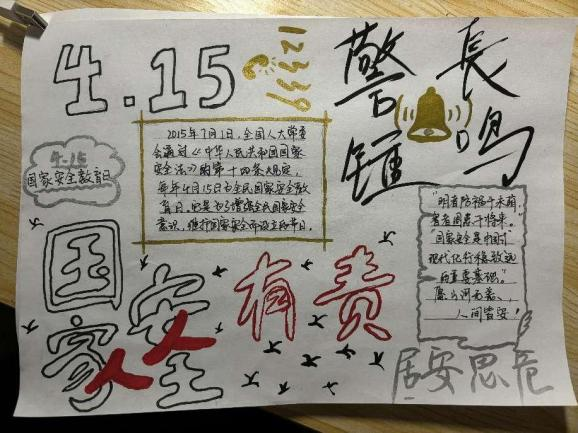 4.15
12339
警鐘
長鳴
4.15
国家安全教育日
2015年7月1日,全国人大常委
会通过《中华人民共和国国家
安全法》的第十四条规定,
每年4月15日为全民国家安全教
育日。
意识,维护国家安全而设立的节日。
"明者防祸于未萌,
智者图患于将来。"
"国家安全是中国式
现代化行稳致远
的重要基础。"
愿山河无恙、
人间皆安!
国家安全
人人有责
居安思危